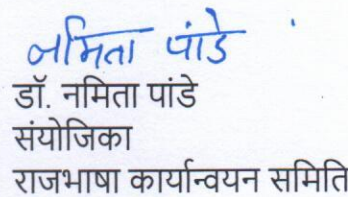 नमिता पांडे
डॉ. नमिता पांडे
संयोजिका
राजभाषा कार्यान्वयन समिति